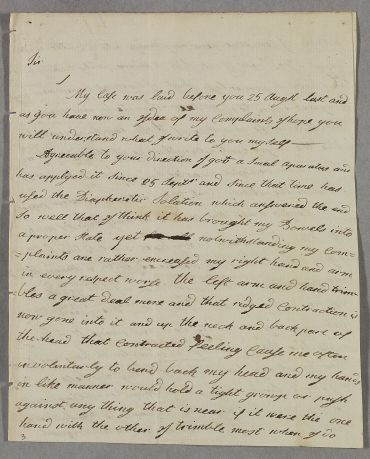 Sir
My Case was laid before you 25 Augt last and
as you have now an Idea of my Complaints I hope you
will understand what I write to you myself —
Agreeable to your direction I got a small aparatus and
has applyed it since 25 Septr and since that time has
used the Diaphoretic Solution which answered the end
so well that I think it has brought my Bowels into
a proper State yet notwithstanding my com-
plaints are rather encreased my right hand and arm
in every respect worse the left arm and hand trim-
bles a great deal more and that ridged Contraction is
now gone into it and up the neck and back part of
the head that contracted feeling cause me often
involuntarly to bend back my head and my hands
in like manner would hold a tight or push
against any thing that is near if it were the one
hand with the other I trimble most when I do
3